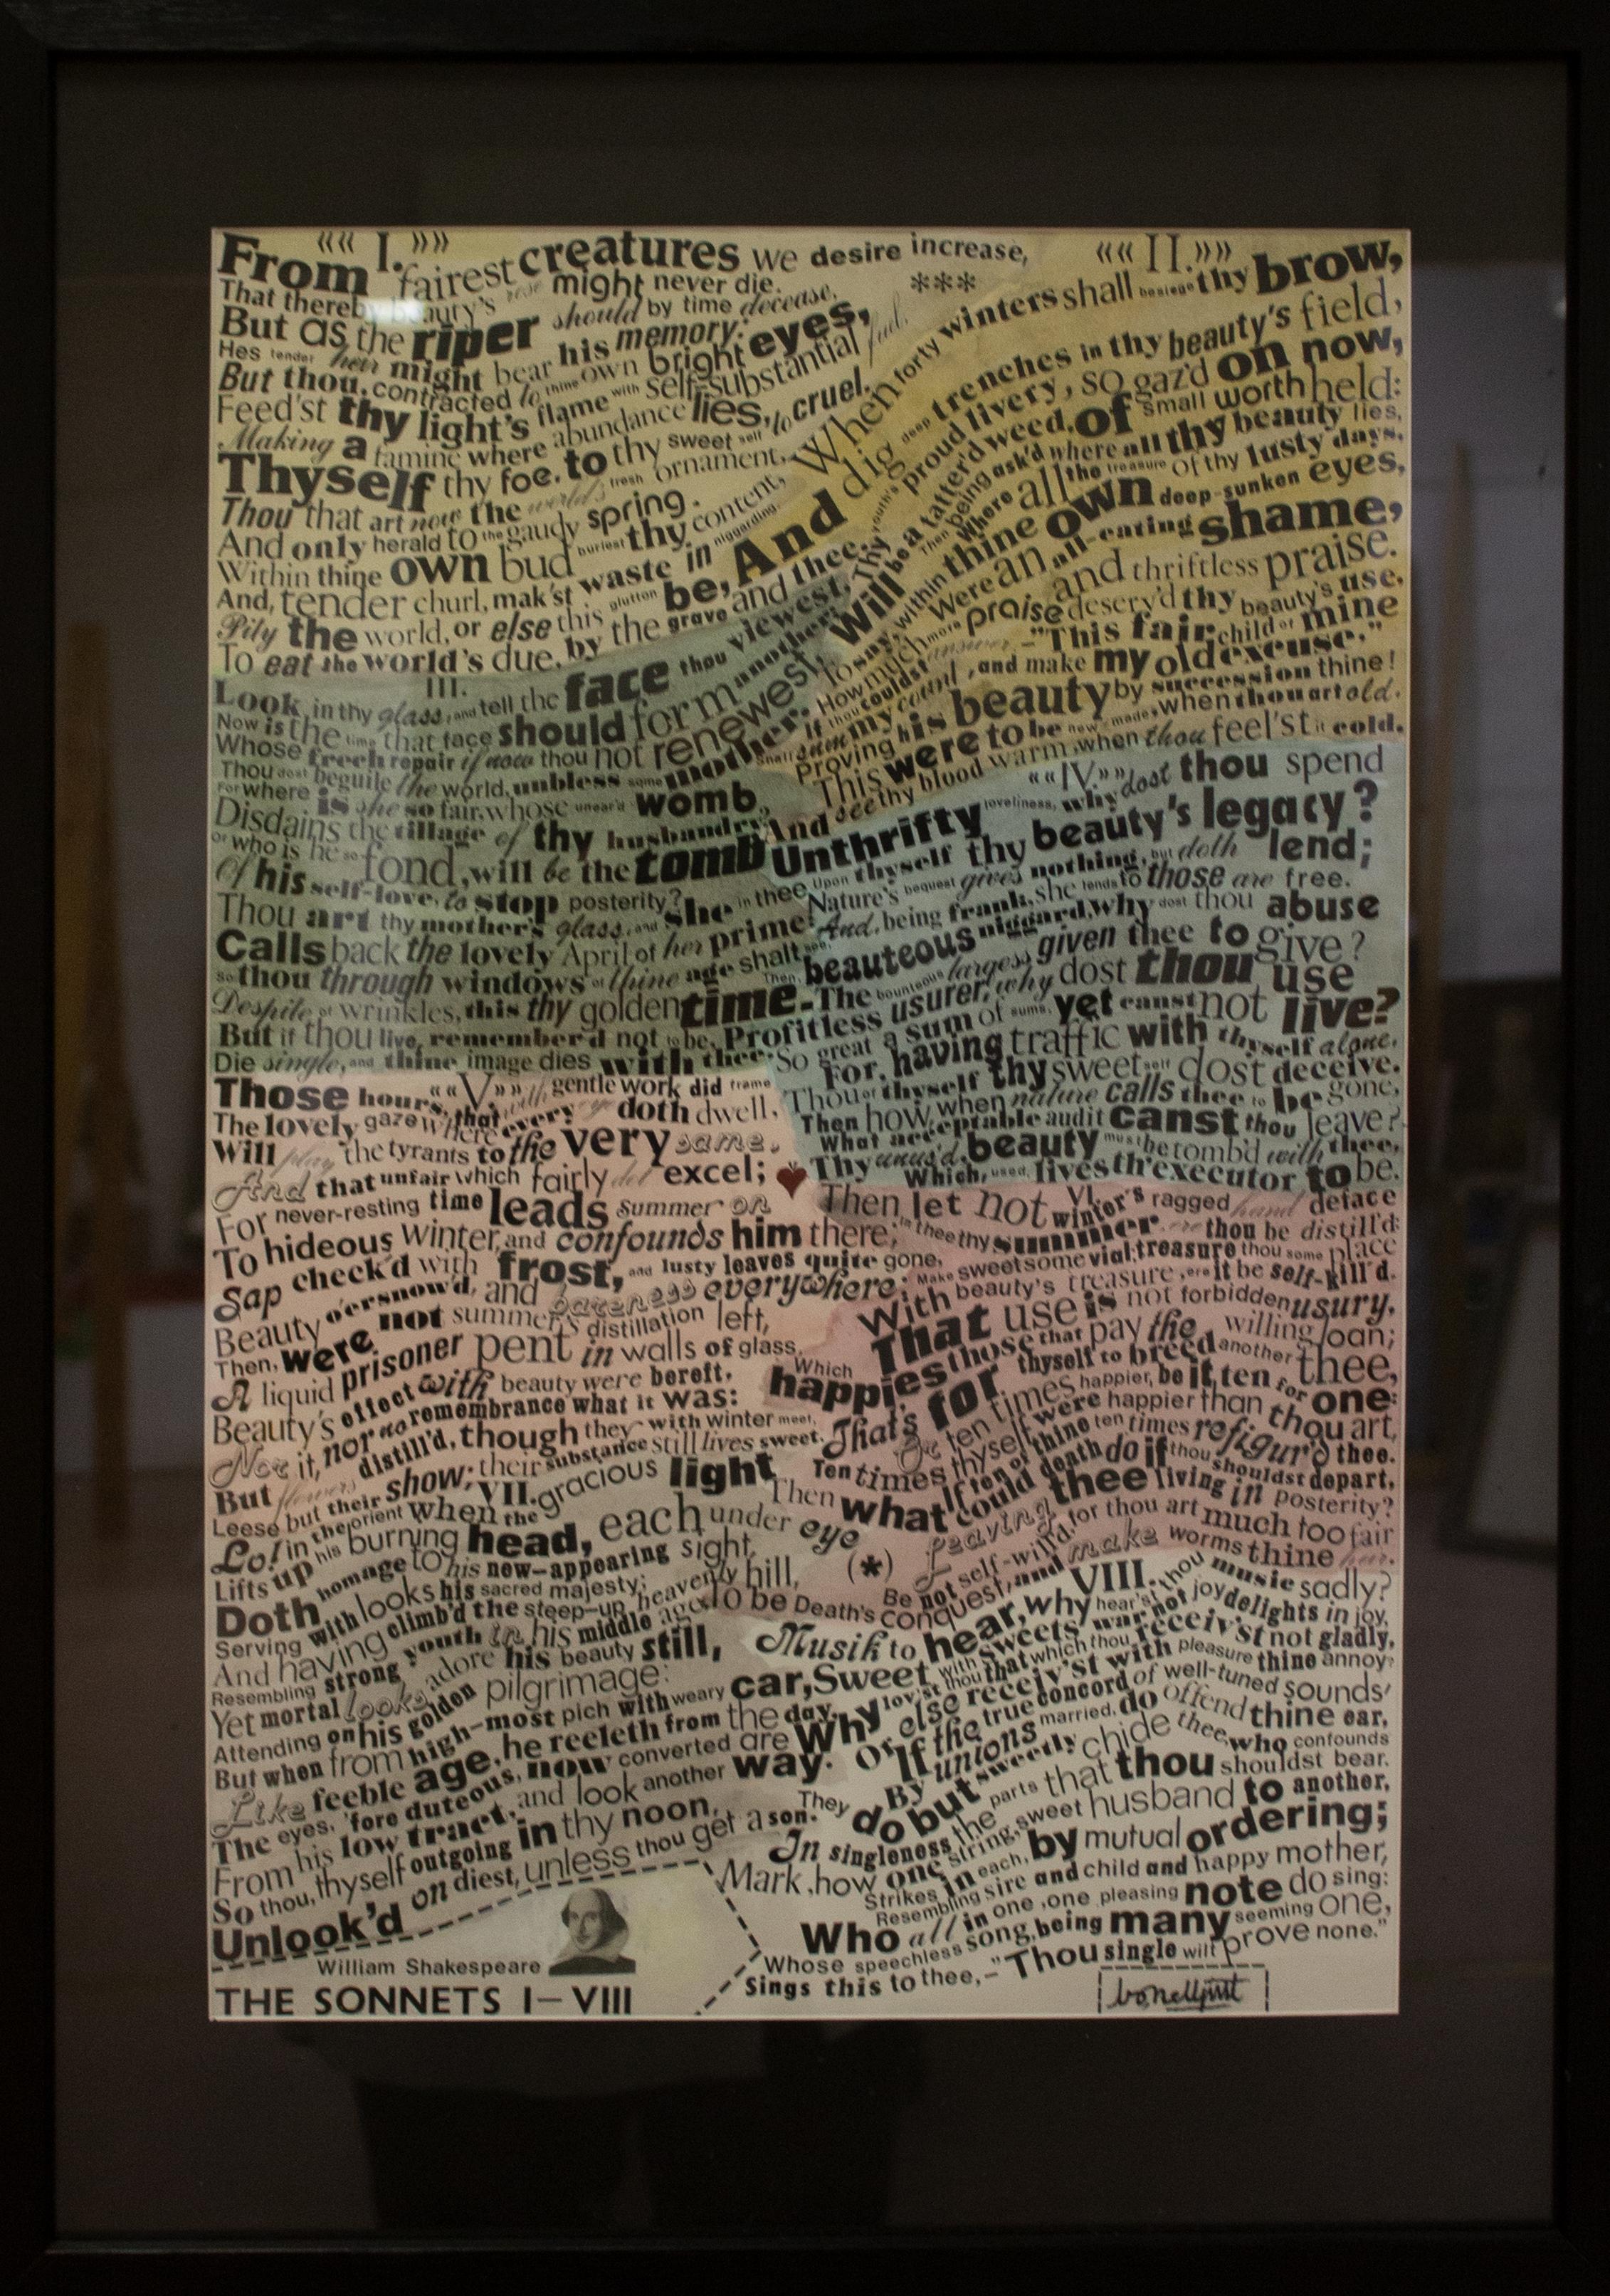 «« I. »»
From fairest creatures we desire increase,
That thereby beauty's rose might never die.
But as the riper should by time decease,
Hes tender heir might bear his memory:
But thou, contracted to thine own bright eyes,
Feed'st thy light's flame with self-substantial fuel.
Making a famine where abundance lies,
Thyself thy foe, to thy sweet self to cruel.
Thou that art now the world's fresh ornament,
And only herald to the gaudy spring.
Within thine own bud buriest thy content,
And, tender churl, mak'st waste in niggarding.
Pity the world, or else this glutton be,
To eat the world's due, by the grave and thee.
***
«« II. »»
When forty winters shall besiege thy brow,
And dig deep trenches in thy beauty's field,
Thy youth's proud livery, so gaz'd on now,
Will be a tatter'd weed, of small worth held:
Then being ask'd where all thy beauty lies,
Where all the treasure of thy lusty days,
To say, within thine own deep-sunken eyes,
Were an all-eating shame, and thriftless praise.
How much more praise deserv'd thy beauty's use,
If thou couldst answer - "This fair child of mine
Shall sum my count, and make my old excuse."
Proving his beauty by succession thine!
This were to be new-made, when thou art old.
And see thy blood warm, when thou feel'st it cold.
III.
Look in thy glass, and tell the face thou viewest,
Now is the time that face should form another;
Whose frech repair if now thou not renewest,
Thou dost beguile the world, unbless some mother.
For where is she so fair, whose unear'd womb
Disdains the tillage of thy husbandry?
Or who is he so fond, will be the tomb
Of his self-love, to stop posterity?
Thou art thy mother's glass, and she in thee
Calls back the lovely April of her prime:
So thou through windows of thine age shalt see,
Despite of wrinkles, this thy golden time.
But if thou live, remember'd not to be,
Die single, and thine image dies with thee.
«« IV. »»
Unthrifty loveliness, why dost thou spend
Upon thyself thy beauty's legacy?
Nature's bequest gives nothing, but doth lend;
And, being frank, she lends to those are free.
Then, beauteous niggard, why dost thou abuse
The bounteous largess given thee to give?
Profitless usurer, why dost thou use
So great a sum of sums, yet canst not live?
For, having traffic with thyself alone,
Thou of thyself thy sweet self dost deceive.
Then how, when nature calls thee to be gone,
What acceptable audit canst thou leave?
Thy unus'd beauty must be tomb'd with thee,
Which, used, lives th'executor to be.
«« V. »»
Those hours, that with gentle work did frame
The lovely gaze where every eye doth dwell,
Will play the tyrants to the very same.
And that unfair which fairly doth excel;
For never-resting time leads summer on
To hideous Winter, and confounds him there;
Sap check'd with frost, and lusty leaves quite gone,
Beauty o'ersnow'd, and bareness everywhere:
Then, were not summer's distillation left,
A liquid prisoner pent in walls of glass,
Beauty's effect with beauty were bereft,
Nor it, nor no remembrance what it was:
But flowers distill'd, though they with winter meet,
Leese but their show; their substance still lives sweet.
VI.
Then let not winter's ragged hand deface
In thee thy summer, ere thou be distill'd:
Make sweet some vial; treasure thou some place
With beauty's treasure, ere it be self-kill'd.
That use is not forbidden usury,
Which happies those that pay the willing loan;
That's for thyself to breed another thee,
Or ten times happier, be it ten for one:
Ten times thyself were happier than thou art,
If ten of thine ten times refigur'd thee.
Then what could death do if thou shouldst depart,
Leaving thee living in posterity?
Be not self-will'd, for thou art much too fair
To be Death's conquest, and make worms thine heir.
(*)
VII.
Lo! in the orient when the gracious light
Lifts up his burning head, each under eye
Doth homage to his new-appearing sight,
Serving with looks his sacred majesty;
And having climb'd the steep-up heavenly hill,
Resembling strong youth in his middle age,
Yet mortal looks adore his beauty still,
Attending on his golden pilgrimage:
But when from high-most pich with weary car,
Like feeble age, he reeleth from the day,
The eyes, 'fore duteous, now converted are
From his low tract, and look another way.
So thou, thyself outgoing in thy noon,
Unlook'd on diest, unless thou get a son.
VIII.
Musik to hear, why hear'st thou music sadly?
Sweet with sweets war not joy delights in joy,
Why lov'st thou that which thou receiv'st not gladly,
Or else receiv'st with pleasure thine annoy?
If the true concord of well-tuned sounds'
By unions married, do offend thine ear,
They do but sweetly chide thee, who confounds
In singleness the parts that thou shouldst bear.
Mark, how one string, sweet husband to another,
Strikes in each, by mutual ordering;
Resembling sire and child and happy mother,
Who all in one, one pleasing note do sing:
Whose speechless song, being many seeming one,
Sings this to thee,-"Thou single wilt prove none."
William Shakespeare
THE SONNETS I–VIII